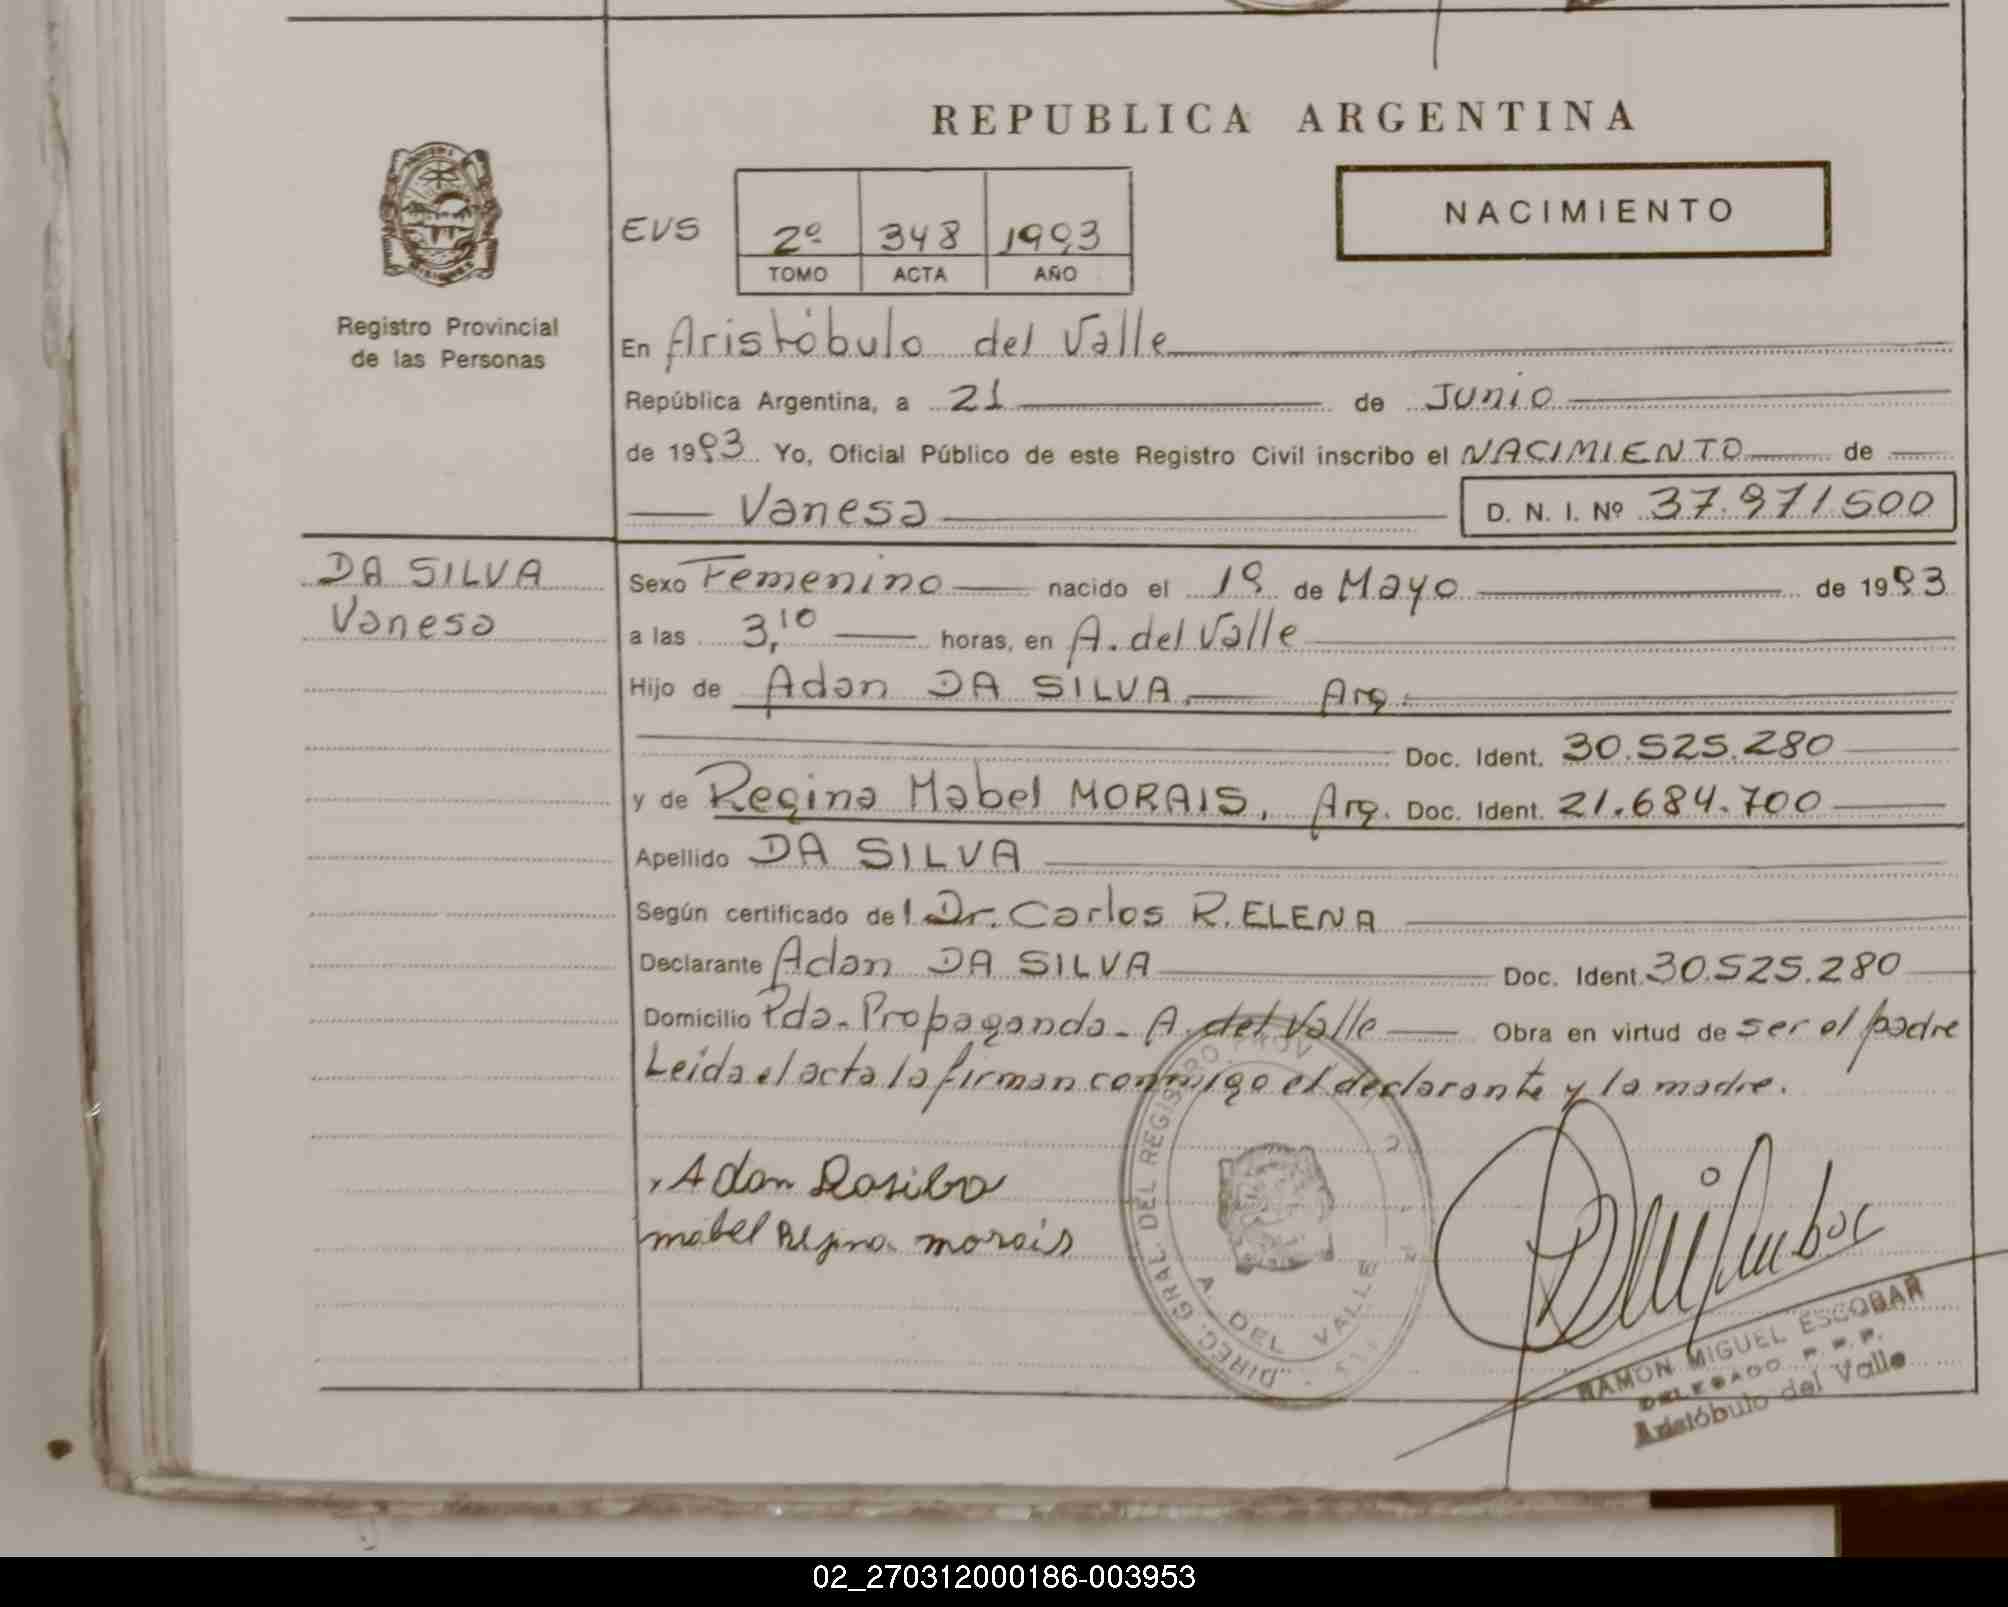 REPUBLICA ARGENTINA
NACIMIENTO
EVS
2º 348 1993
TOMO ACTA AÑO
Registro Provincial
de las Personas
En Aristóbulo del Valle
República Argentina, a 21 de Junio
de 1993 Yo, Oficial Público de este Registro Civil inscribo el NACIMIENTO de
Vanesa D. N. I. Nº 37.971.500
DA SILVA
Vanesa
Sexo Femenino nacido el 1º de Mayo de 1993
a las 3,10 horas, en A. del Valle
Hijo de Adan DA SILVA. Arg.
Doc. Ident. 30.525.280
y de Regina Mabel MORAIS, Arg. Doc. Ident. 21.684.700
Apellido DA SILVA
Según certificado del Dr. Carlos R. ELENA
Declarante Adan DA SILVA Doc. Ident. 30.525.280
Domicilio Pda. Propaganda - A. del Valle Obra en virtud de ser el padre
Leída el acta la firman conmigo el declarante y la madre.
Adan Dasilva
mabel Rejina morais
DIREC. GRAL. DEL REGISTRO PROV
A. DEL VALLE
RAMON MIGUEL ESCOBAR
DELEGADO R. P. P.
Aristóbulo del Valle
02_270312000186-003953